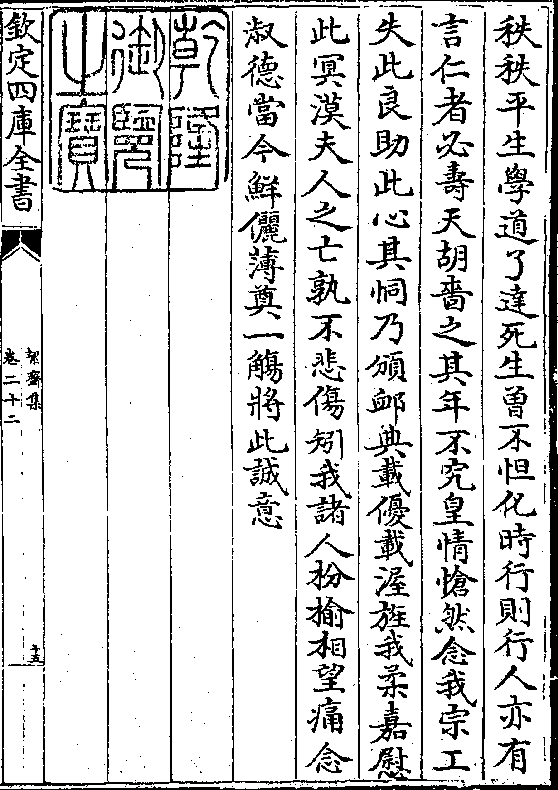 秩秩平生學道了達死生曾不怛化時行則行人亦有
言仁者必壽天胡嗇之其年不究皇情愴然念我宗工
失此良助此心其恫乃頒䘏典載優載渥旌我柔嘉慰
此冥漠夫人之亡孰不悲傷矧我諸人枌榆相望痛念
淑德當今鮮儷薄奠一觴將此誠意
乾隆御覽之寶
欽定四庫全書
絜齋集
卷二十二
十五